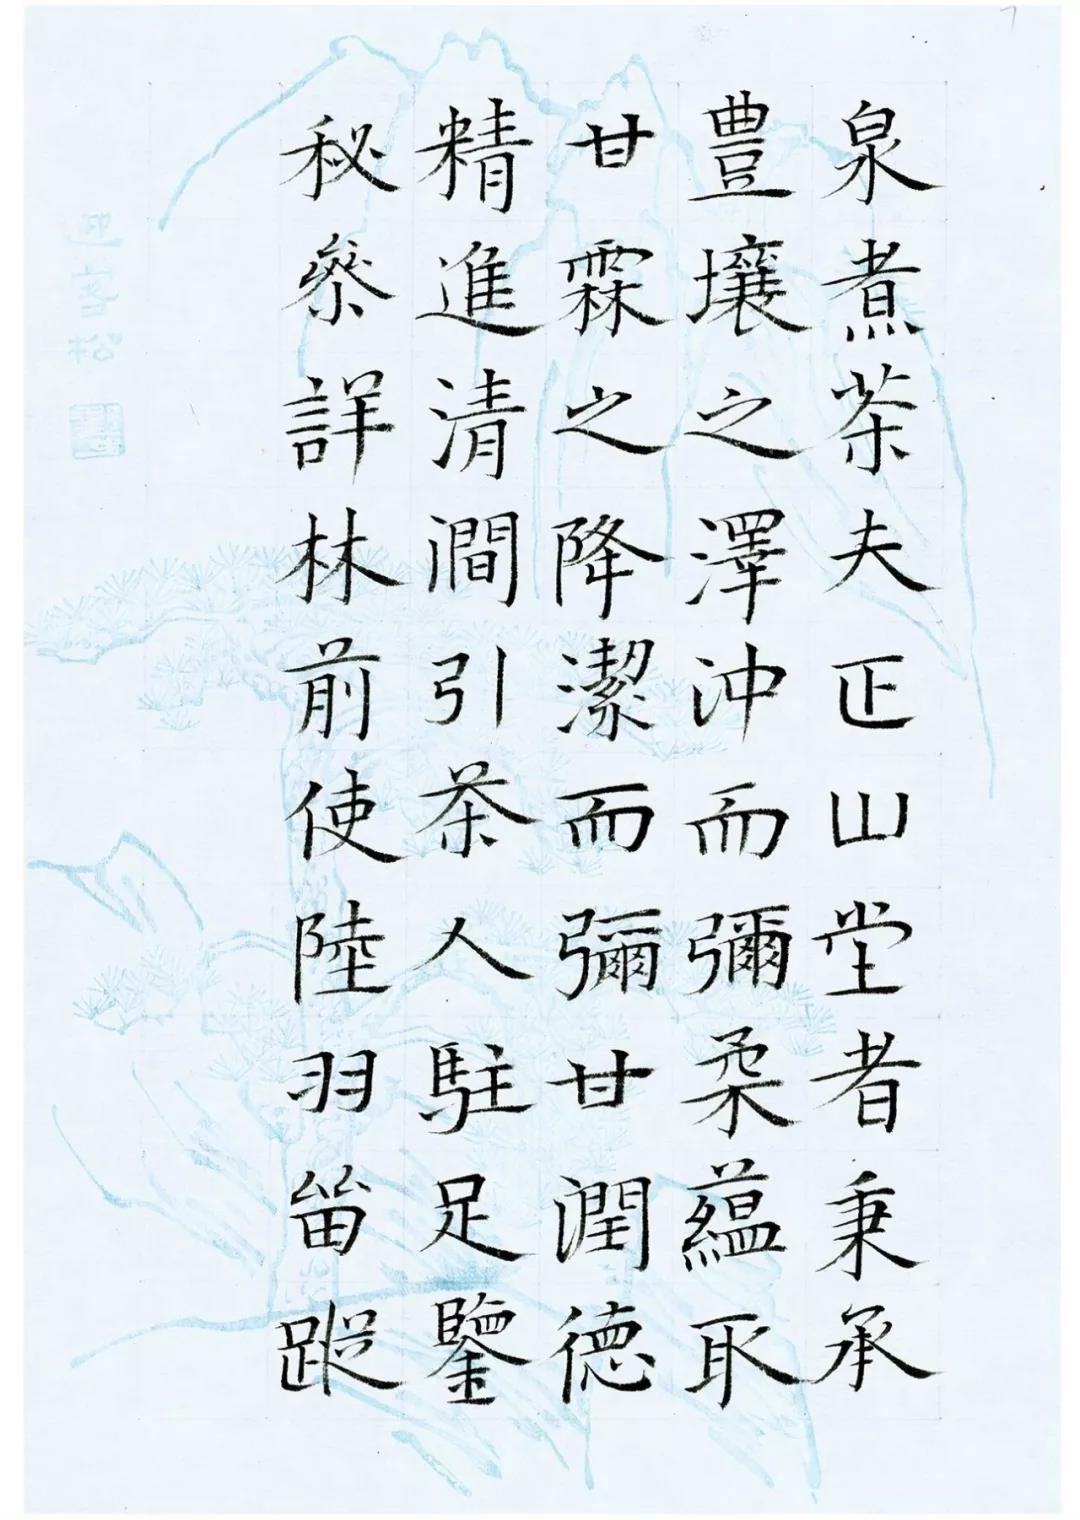 泉煮茶夫正山堂者秉承
豊壤之澤沖而彌柔蘊取
甘霖之降潔而彌甘潤德
精進清澗引茶人駐足鑒
秘參詳林前使陸羽留蹤